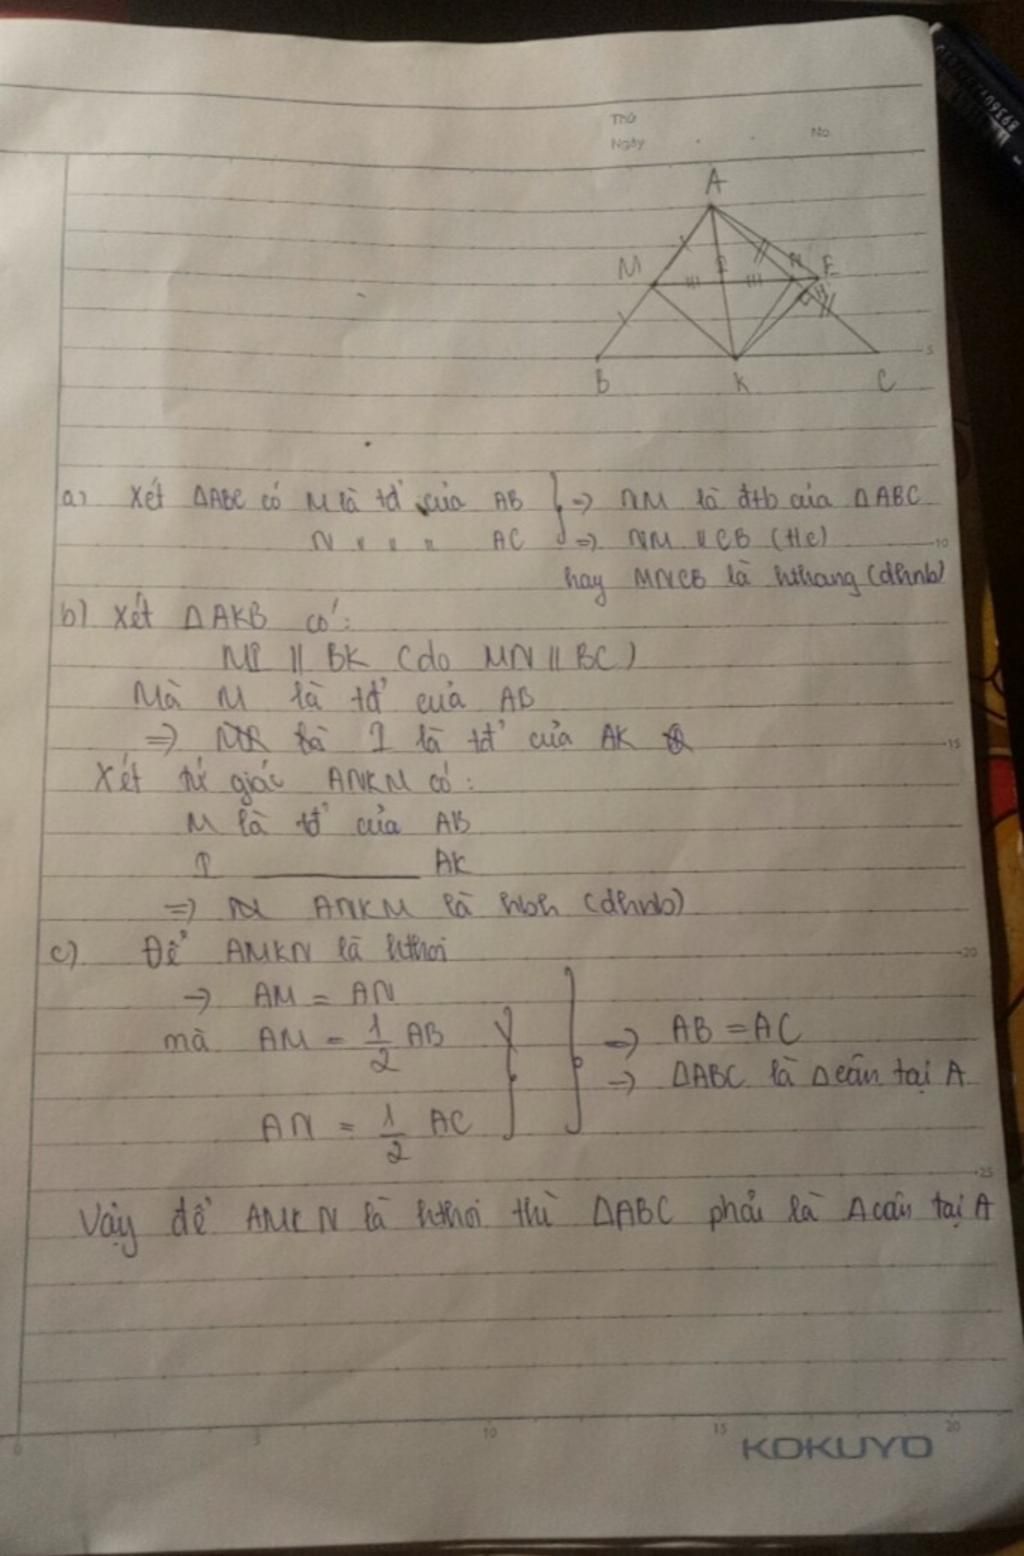 Thứ
Ngày No
A
M I N E
H
B K C
a) Xét ΔABC có M là tđ của AB } => NM là đtb của ΔABC
N " " " AC => NM // CB (t/c)
hay MNCB là hthang (dhnb)
b) Xét ΔAKB có:
MI // BK (do MN // BC)
Mà M là tđ của AB
=> I là tđ của AK
Xét tứ giác ANKM có:
M là tđ của AB
I ______ AK
=> ANKM là hbh (dhnb)
c) Để AMKN là hthoi
-> AM = AN
mà AM = 1/2 AB } => AB = AC
-> ΔABC là Δ cân tại A
AN = 1/2 AC
Vậy để AMKN là hthoi thì ΔABC phải là Δ cân tại A
KOKUYO